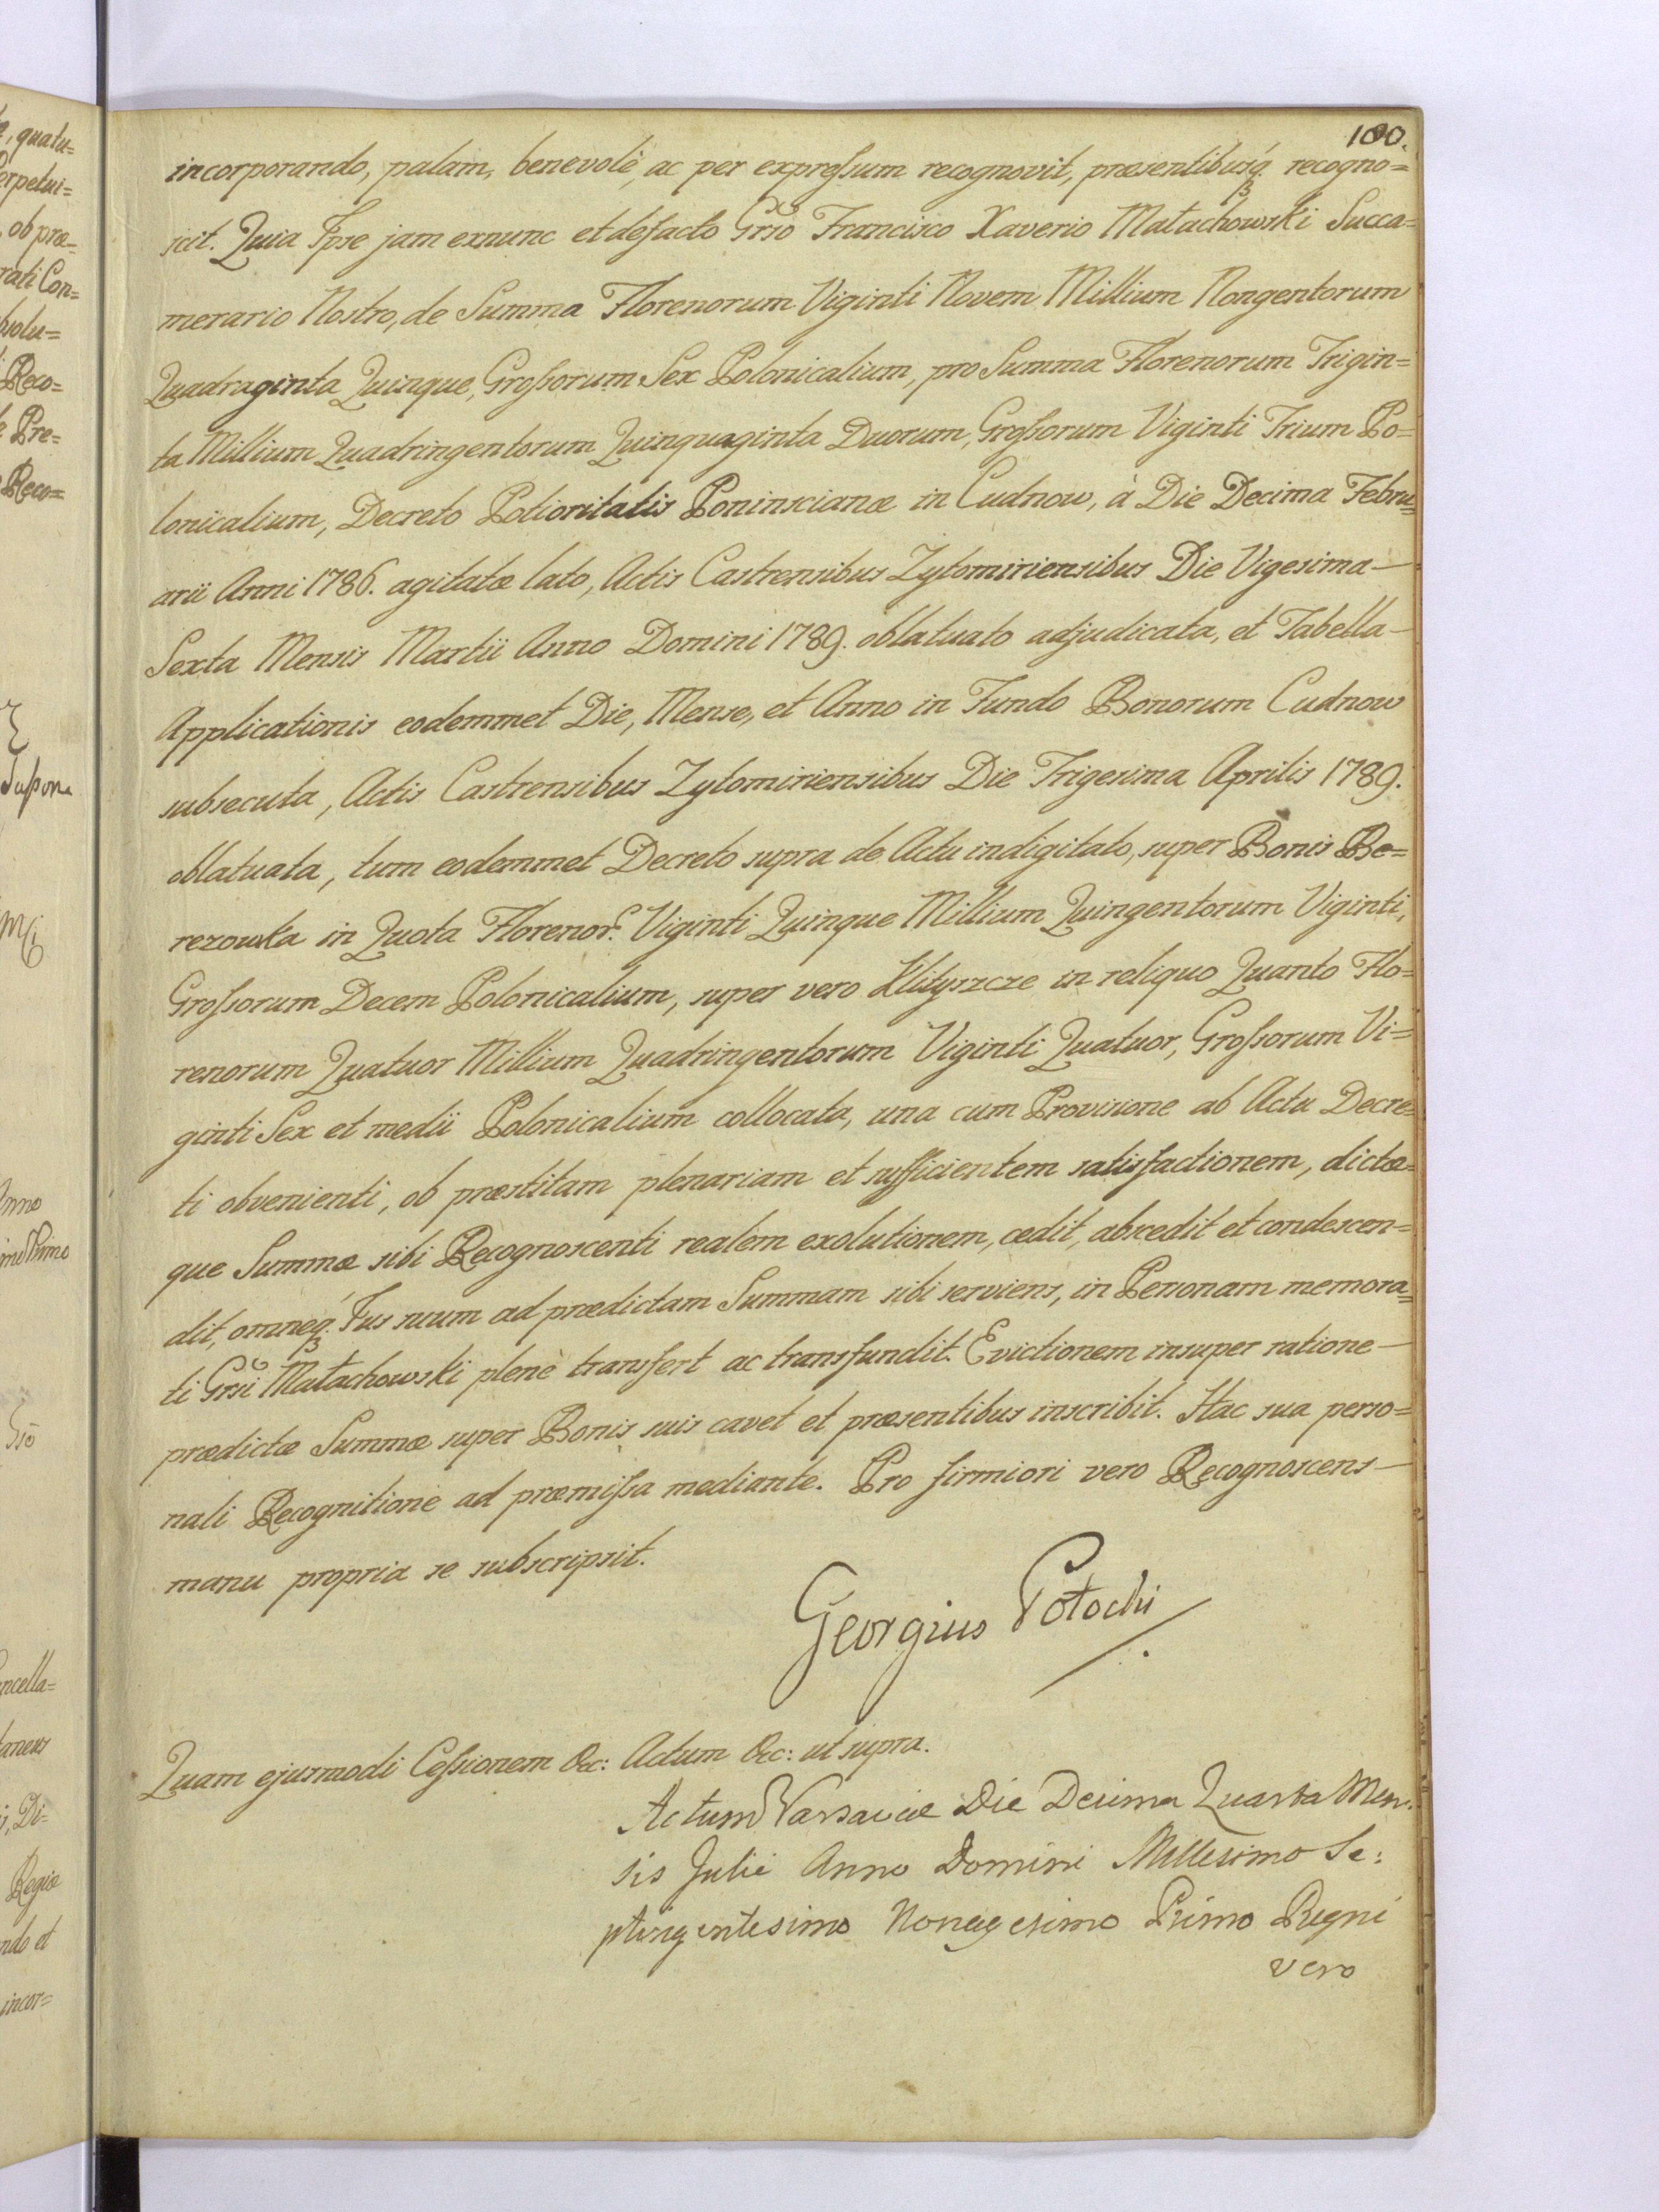 100.
incorporando, palam, benevolè, ac per expressum recognovit, præsentibusq́ recogno=
scit. Quia Ipse jam exnunc et defacto Grso Francisco Xaverio Małachowski Succa=
merario Nostro, de Summa Florenorum Viginti Novem Millium Nongentorum
Quadraginta Quinque, Grossorum Sex Polonicalium, pro Summa Florenorum Trigin=
ta Millium Quadringentorum Quinquaginta Duorum, Grossorum Viginti Trium Po=
lonicalium, Decreto Potioritatis Poninscianæ in Cudnow, à Die Decima Febru=
arii Anni 1786. agitatæ lato, Actis Castrensibus Zytomiriensibus Die Vigesima—
Sexta Mensis Martii Anno Domini 1789. oblatuato adjudicata, et Tabella—
Applicationis eodemmet Die, Mense, et Anno in Fundo Bonorum Cudnow
subsecuta, Actis Castrensibus Zytomiriensibus Die Trigesima Aprilis 1789.
oblatuata, tum eodemmet Decreto supra de Actu indigitato, super Bonis Be=
rezowka in Quota Florenor. Viginti Quinque Millium Quingentorum Viginti,
Grossorum Decem Polonicalium, super vero Klityszcze in reliquo Quanto Flo=
renorum Quatuor Millium Quadringentorum Viginti Quatuor, Grossorum Vi=
ginti Sex et medii Polonicalium collocata, una cum Provisione ab Actu Decre=
ti obvenienti, ob præstitam plenariam et sufficientem satisfactionem, dictæ=
que Summæ sibi Recognoscenti realem exolutionem, cedit, abscedit et condescen=
dit, omneq́ Jus suum ad prædictam Summam sibi serviens, in Personam memora=
ti Grsi Małachowski plenè transfert ac transfundit. Evictionem insuper ratione—
prædictæ Summæ super Bonis suis cavet et præsentibus inscribit. Hac sua perso=
nali Recognitione ad præmissa mediante. Pro firmiori vero Recognoscens—
manu propria se subscripsit.
Georgius Potocki
Quam ejusmodi Cessionem &c: Actum &c: ut supra.
Actum Varsaviæ Die Decima Quarta Men:
sis Julii Anno Domini Millesimo Se:
ptingentesimo Nonagesimo Primo Regni
vero